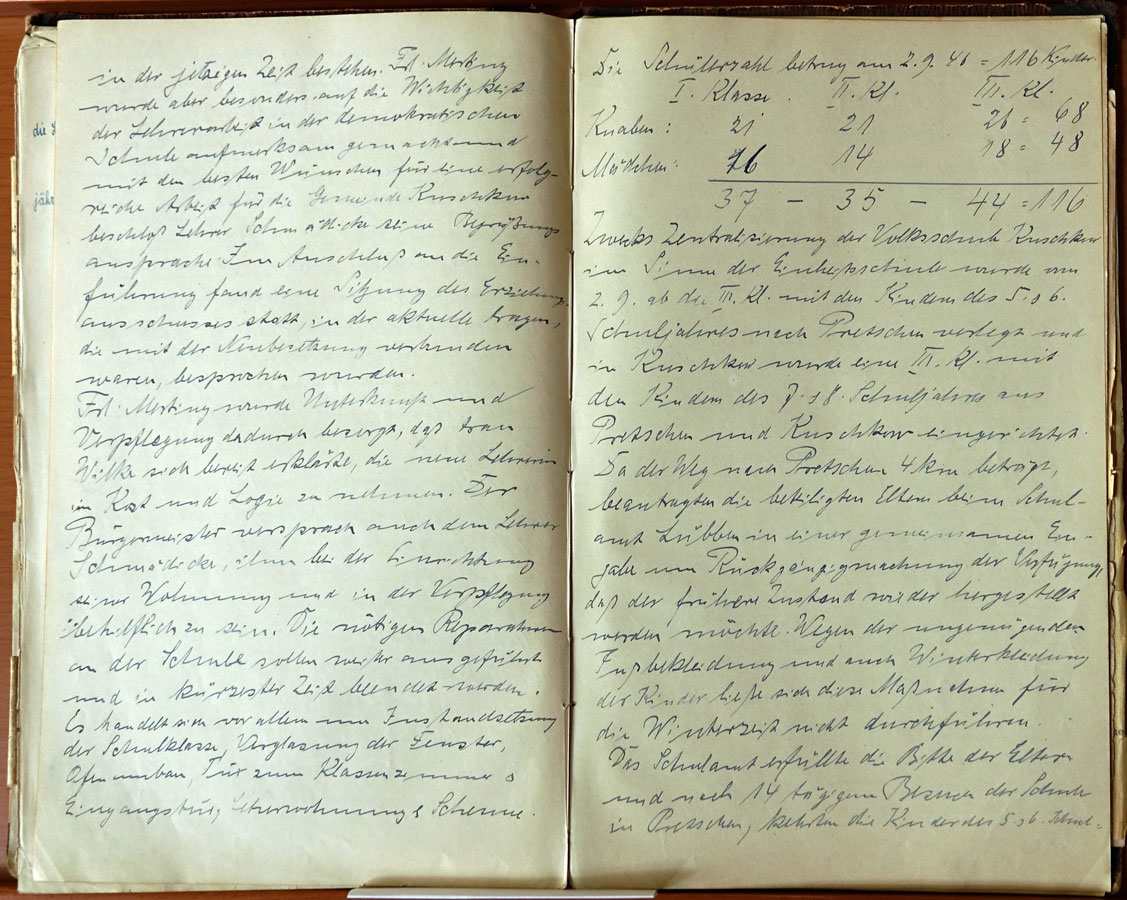 in der jetzigen Zeit bestehen. Frl. Merting
wurde aber besonders auf die Wichtigkeit
der Lehrerarbeit in der demokratischen
Schule aufmerksam gemacht und
mit den besten Wünschen für eine erfolg-
reiche Arbeit für die Gemeinde Kuschkow
beschloß Lehrer Schmädicke seine Begrüßungs
ansprache. Im Anschluß an die Ein-
führung fand eine Sitzung des Erziehungs
ausschusses statt, in der aktuelle Fragen,
die mit der Neubesetzung verbunden
waren, besprochen wurden.
Frl. Merting wurde Unterkunft und
Verpflegung dadurch besorgt, daß Frau
Wilke sich bereit erklärte, die neue Lehrerin
in Kost und Logie zu nehmen. Der
Bürgermeister versprach auch dem Lehrer
Schmädicke, ihm bei der Einrichtung
seiner Wohnung und in der Verpflegung
behilflich zu sein. Die nötigen Reparaturen
an der Schule sollen weiter ausgeführt
und in kürzester Zeit beendet werden.
Es handelt sich vor allem um Instandsetzung
der Schulklasse, Verglasung der Fenster,
Ofenumbau, Tür zum Klassenzimmer
Eingangstür, Lehrerwohnung Scheune.
die
jähr
Die Schülerzahl betrug am 2. 9. 46 = 116 Kinder.
I. Klasse. II. Kl. III. Kl.
Knaben: 21 21 26 = 68
Mädchen: 16 14 18 = 48
37 – 35 – 44 = 116
Zwecks Zentralisierung der Volksschule Kuschkow
im Sinne der Einheitsschule wurde am
2. 9. ab die III. Kl. mit den Kindern des 5. u 6.
Schuljahres nach Pretschen verlegt und
in Kuschkow wurde eine III. Kl. mit
den Kindern des 7. u 8. Schuljahres aus
Pretschen und Kuschkow eingerichtet.
Da der Weg nach Pretschen 4 km beträgt,
beantragten die beteiligten Eltern beim Schul-
amt Lübben in einer gemeinsamen Ein-
gabe um Rückgängigmachung der Verfügung,
daß der frühere Zustand wieder hergestellt
werden möchte. Wegen der ungenügenden
Fußbekleidung und auch Winterkleidung
der Kinder ließe sich diese Maßnahme für
die Winterzeit nicht durchführen.
Das Schulamt erfüllte die Bitte der Eltern
und nach 14 tägigem Besuch der Schule
in Pretschen, kehrten die Kinder des 5. u 6. Schul-